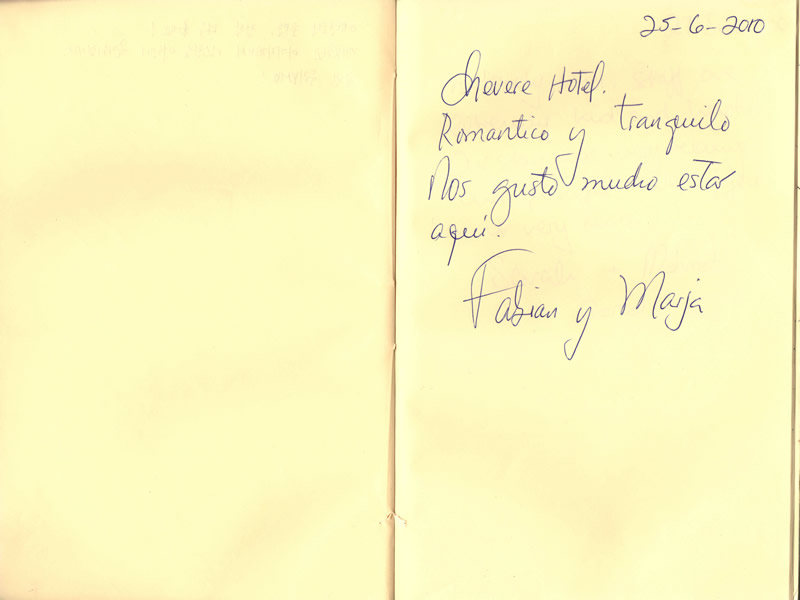 25-6-2010
Chevere Hotel.
Romantico y tranquilo
Nos gusto mucho estar
aqui.
Fabian y Marja